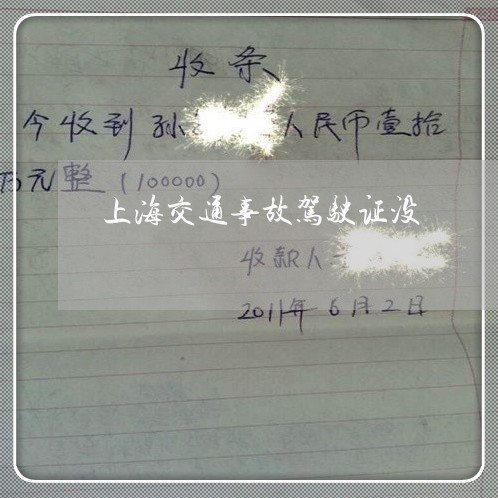 收条
今收到孙 人民币壹拾
万元整(100000)
上海交通事故驾驶证没
收款人
2011年6月2日